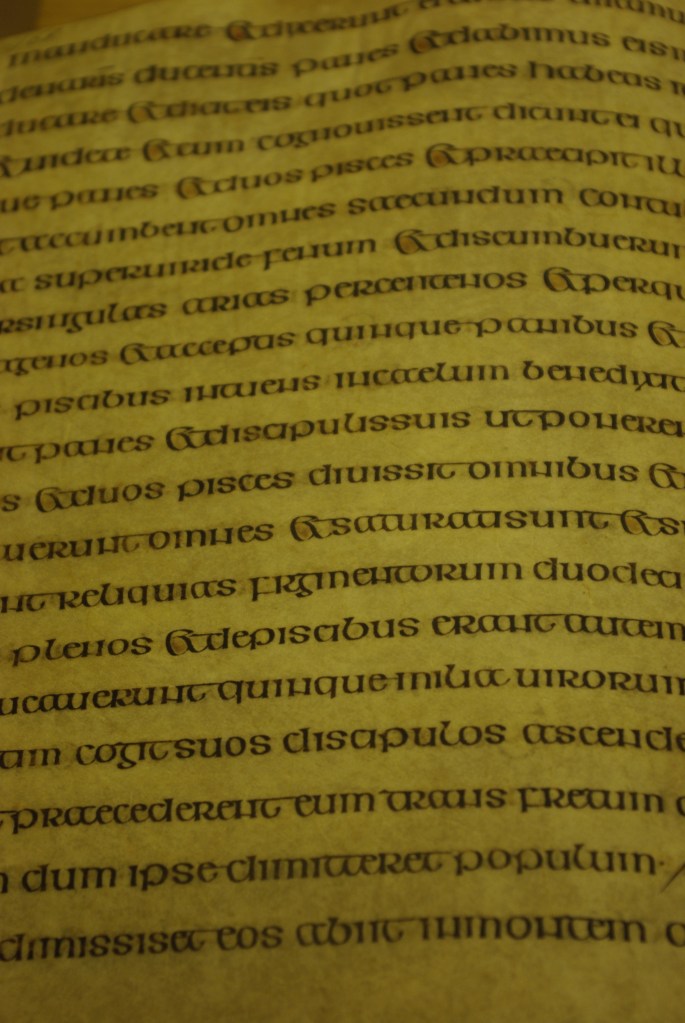 manducare & dixerunt
denariis ducentis panes & dabimus eis m
ducare & dicit eis quot panes habetis
& uidete & cum cognouissent dicunt ei qu
que panes & duos pisces & praecipit ill
t accumbent omnes saecundum contu
a super uiride fenum & discumbuerun
rsingulas arias per centenos & per qu
agenos & acceptis quinque panibus &
piscibus intuens in caelum benedixit
it panes & discipulis suis ut ponere
s & duos pisces diuissit omnibus &
uerunt omnes & saturati sunt & s
nt reliquias frgmentorum duodeci
plenos & de piscibus erant autem
ucauerunt quinque milia uirorum
am cogit suos discipulos ascende
t praecederent eum trans fretum
m dum ipse dimitteret populum·
dimissiset eos abiit in montem o